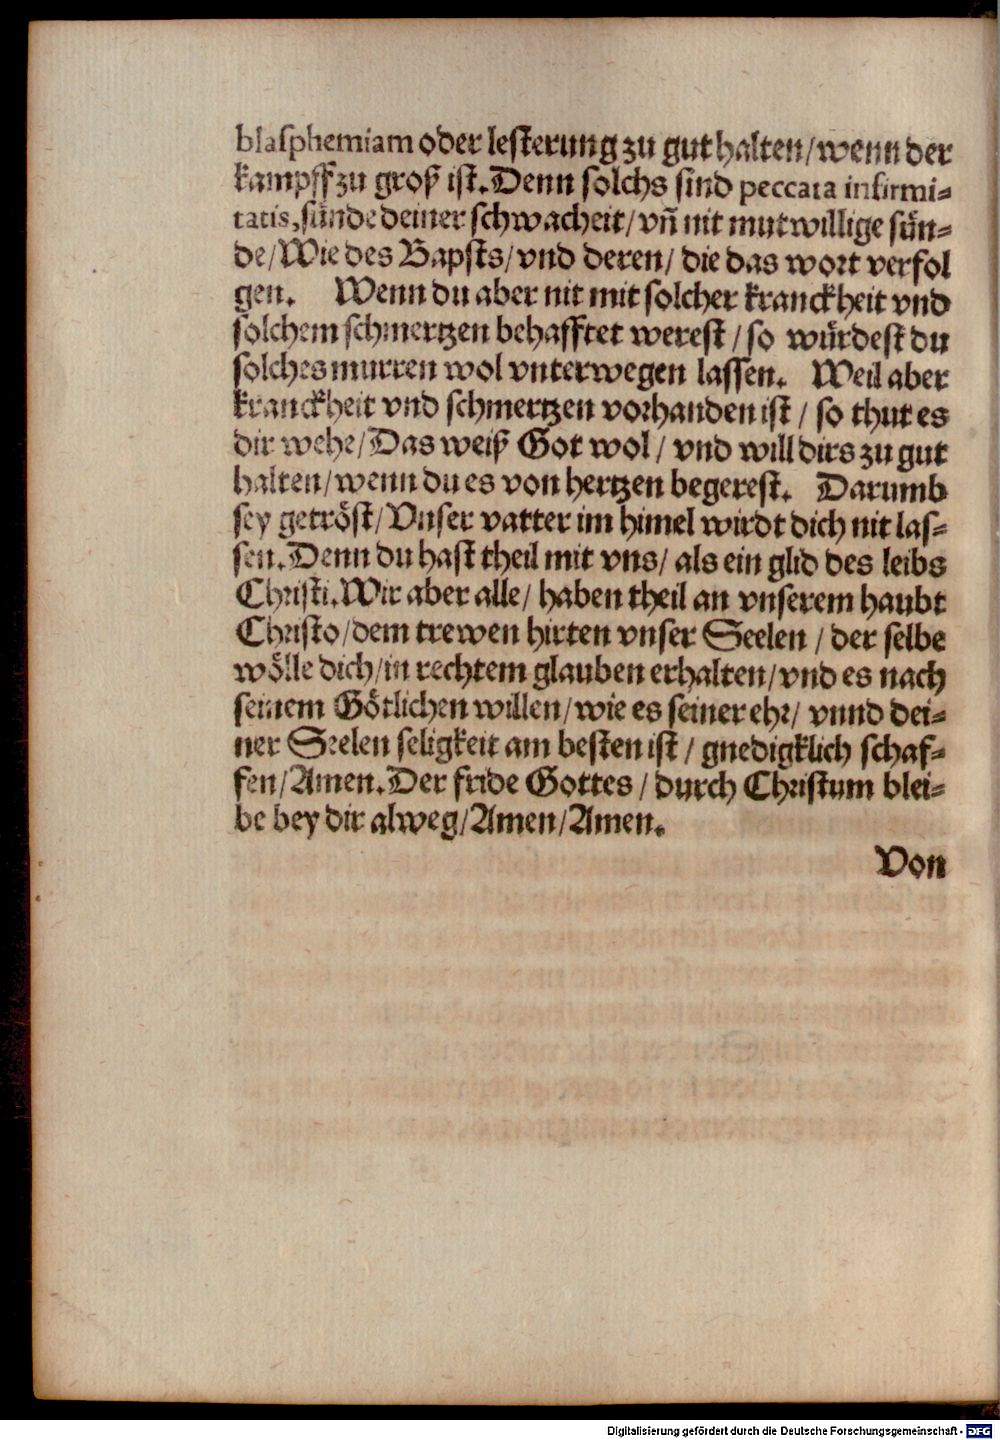 blasphemiam oder lesterung zu gut halten/wenn der
kampff zu groß ist. Denn solchs sind peccata infirmi⸗
tatis, sünde deiner schwacheit/ vñ nit mutwillige sün⸗
de/Wie des Bapsts/vnd deren/ die das wort verfol
gen. Wenn du aber nit mit solcher kranckheit vnd
solchem schmertzen behafftet werest/so würdest du
solches murren wol vnterwegen lassen. Weil aber
kranckheit vnd schmertzen vorhanden ist/ so thut es
dir wehe/Das weiß Got wol/ vnd will dirs zu gut
halten/wenn du es von hertzen begerest. Darumb
sey getröst/Vnser vatter im himel wirdt dich nit las⸗
sen. Denn du hast theil mit vns/ als ein glid des leibs
Christi. Wir aber alle/ haben theil an vnserem haubt
Christo/dem trewen hirten vnser Seelen/der selbe
wölle dich/in rechtem glauben erhalten/vnd es nach
seinem Götlichen willen/wie es seiner ehr/ vnnd dei⸗
ner Seelen seligkeit am besten ist/ gnedigklich schaf⸗
fen/Amen. Der fride Gottes/durch Christum blei⸗
be bey dir alweg/Amen/Amen.
Von
Digitalisierung gefördert durch die Deutsche Forschungsgemeinschaft - DFG